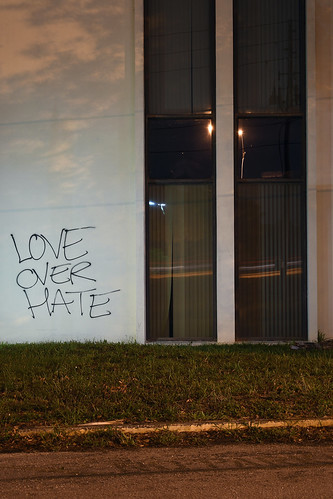 LOVE
OVER
HATE